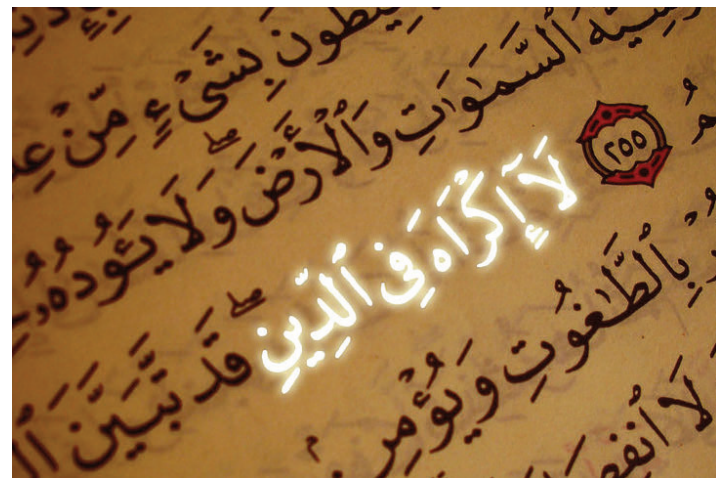 يطُونَ بِشَىْءٍ مِّنْ عِ
رْسِيُّهُ ٱلسَّمَٰوَٰتِ وَٱلْأَرْضَ ۖ وَلَا يَـُٔودُهُۥ
مُ ٢٥٥ لَآ إِكْرَاهَ فِى ٱلدِّينِ ۖ قَد تَّبَيَّنَ ٱل
رْ بِٱلطَّٰغُوتِ وَيُؤْمِنۢ
لَا ٱنفِصَا